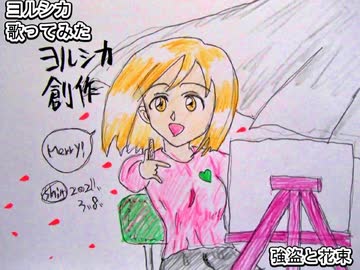 ヨルシカ
歌ってみた
ヨルシカ
創作
Merry!
Shin
2021
3.8.
強盗と花束